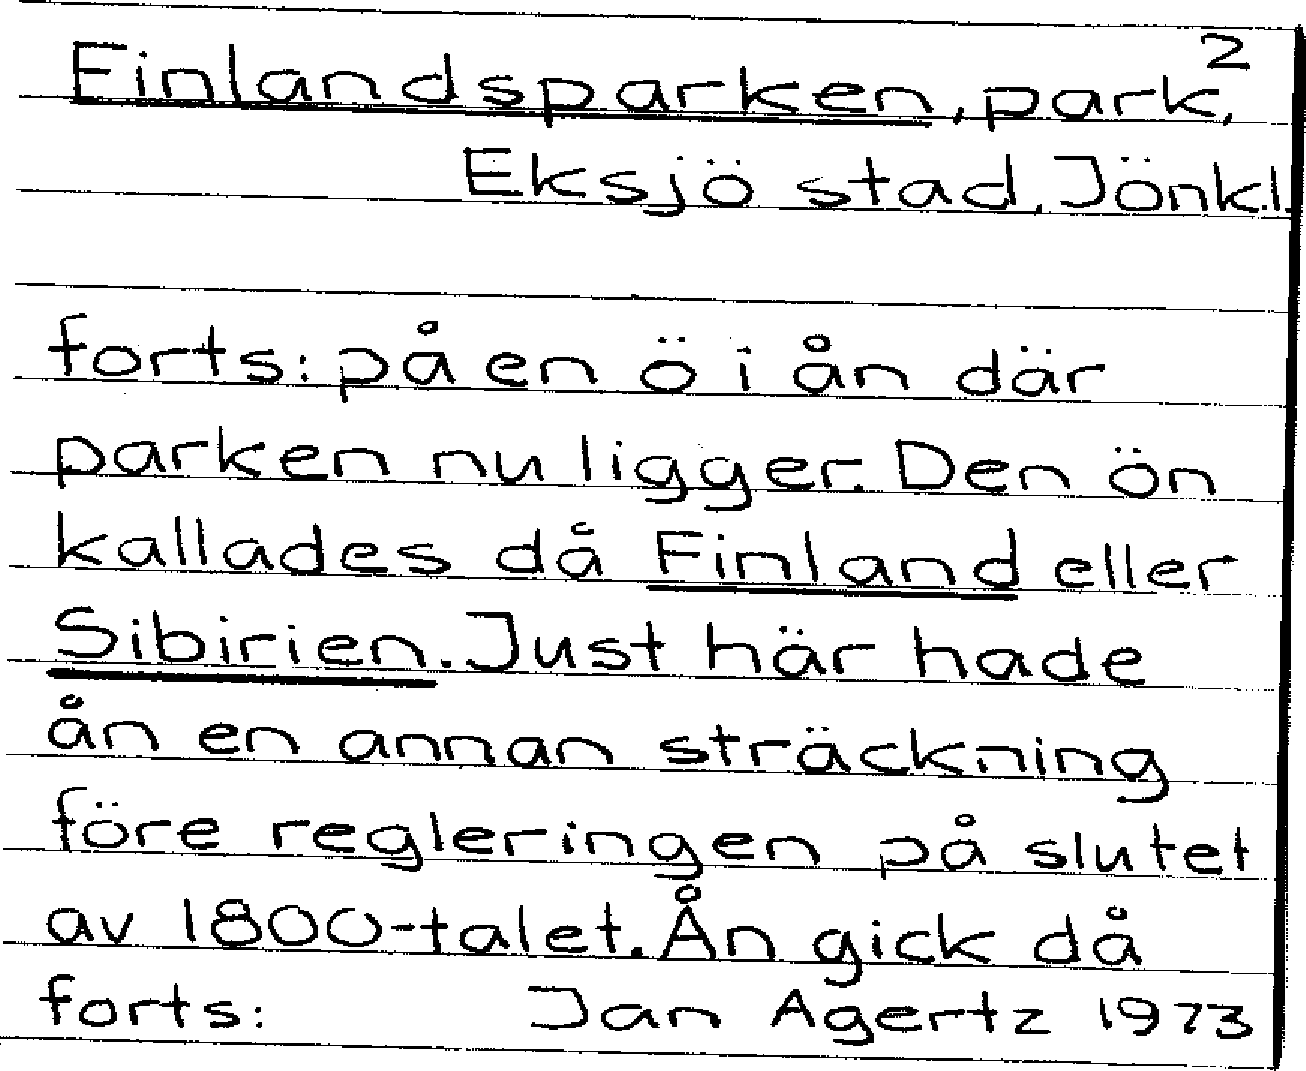 2
Finlandsparken, park,
Eksjö stad, Jönk.l.
forts: på en ö i ån där
parken nu ligger. Den ön
kallades då Finland eller
Sibirien. Just här hade
ån en annan sträckning
före regleringen på slutet
av 1800-talet. Ån gick då
forts: Jan Agertz 1973